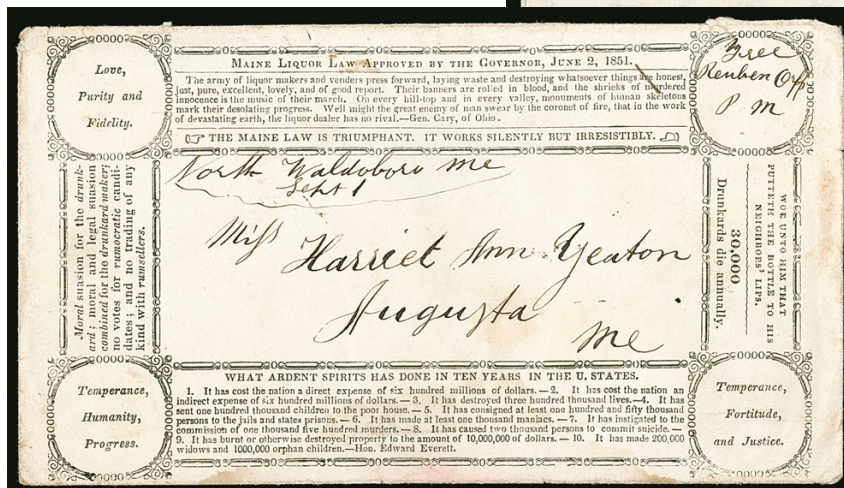 Love,
Purity and
Fidelity.
MAINE LIQUOR LAW APPROVED BY THE GOVERNOR, JUNE 2, 1851.
The army of liquor makers and venders press forward, laying waste and destroying whatsoever things are honest,
just, pure, excellent, lovely, and of good report. Their banners are rolled in blood, and the shrieks of murdered
innocence is the music of their march. On every hill-top and in every valley, monuments of human skeletons
mark their desolating progress. Well might the great enemy of man swear by the coronet of fire, that in the work
of devastating earth, the liquor dealer has no rival.—Gen. Cary, of Ohio.
☞ THE MAINE LAW IS TRIUMPHANT. IT WORKS SILENTLY BUT IRRESISTIBLY. ☜
Free
Reuben Orff
P M
North Waldoboro Me
Sept 1
Miss Harriet Ann Yeaton
Augusta
Me
Moral suasion for the drunk-
ard; moral and legal suasion
combined for the drunkard maker;
no votes for rumocratic candi-
dates; and no trading of any
kind with rumsellers.
WOE UNTO HIM THAT
PUTTETH THE BOTTLE TO HIS
NEIGHBORS' LIPS.
30,000
Drunkards die annually.
Temperance,
Humanity,
Progress.
WHAT ARDENT SPIRITS HAS DONE IN TEN YEARS IN THE U. STATES.
1. It has cost the nation a direct expense of six hundred millions of dollars.—2. It has cost the nation an
indirect expense of six hundred millions of dollars.—3. It has destroyed three hundred thousand lives.—4. It has
sent one hundred thousand children to the poor house.—5. It has consigned at least one hundred and fifty thousand
persons to the jails and states prisons.—6. It has made at least one thousand maniacs.—7. It has instigated to the
commission of one thousand five hundred murders.—8. It has caused two thousand persons to commit suicide.—
9. It has burnt or otherwise destroyed property to the amount of 10,000,000 of dollars.—10. It has made 200,000
widows and 1000,000 orphan children.—Hon. Edward Everett.
Temperance,
Fortitude,
and Justice.